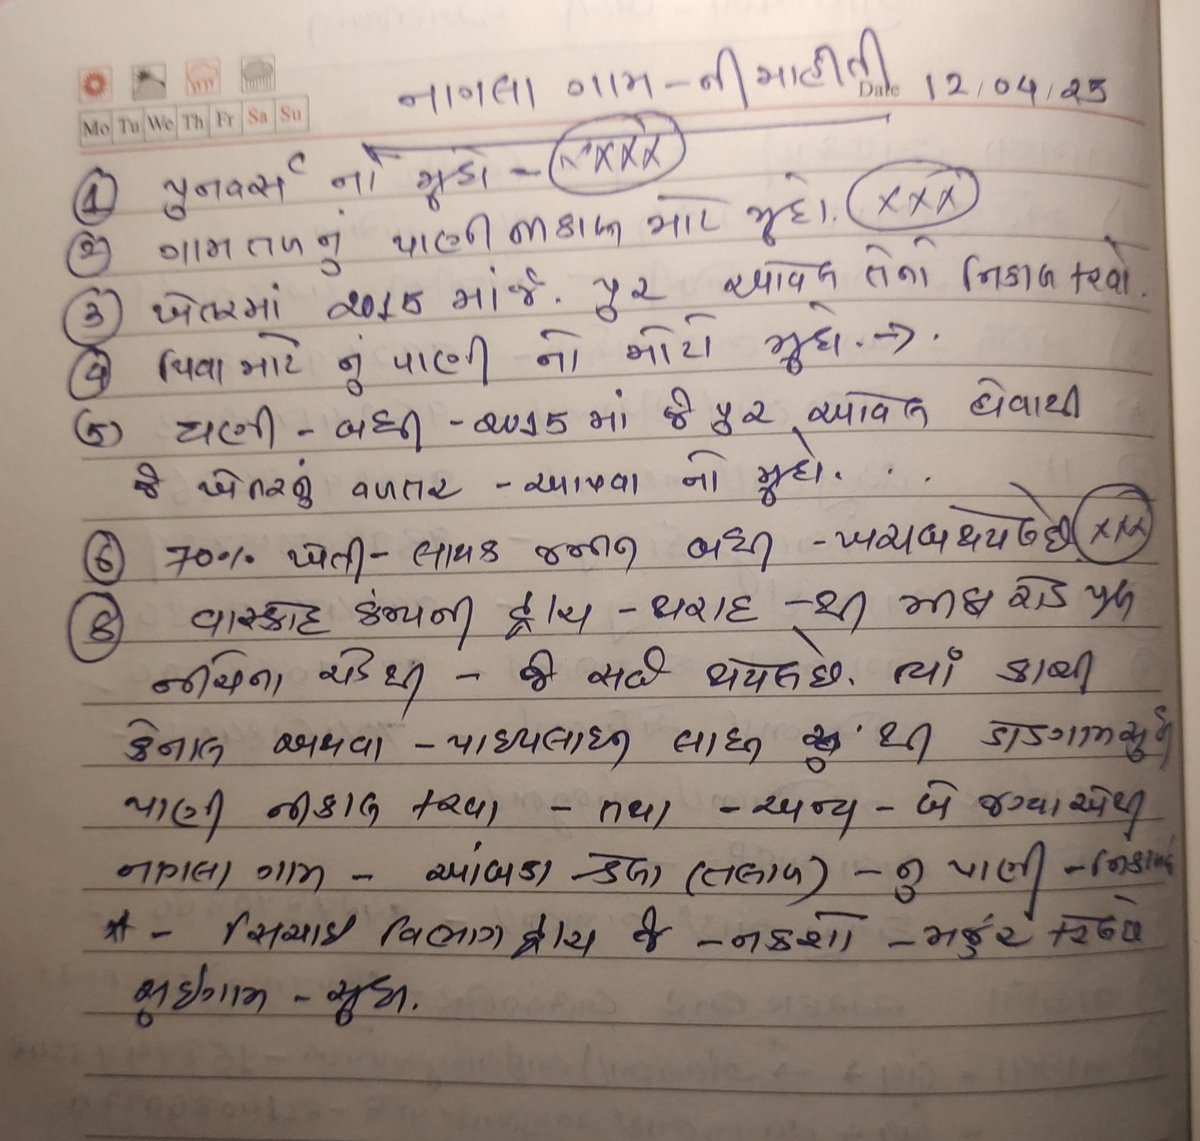 નાગલા ગામ-ની માહીતી Date 12/04/25
Mo Tu We Th Fr Sa Su
① પુનવર્સ નો મુદ્દો - xxxx
② ગામતળનું પાણી નીકાળ માટે મુદ્દો. xxx
③ ખેતરમાં 2015 માં જે. પુર આવેલ તેનો નિકાલ કરવો.
④ પિવા માટે નું પાણી નો મોટો મુદ્દો.→.
⑤ ઘણી - બધી - 2015 માં જે પુર આવેલ હોવાથી
જે ખેતરનું વળતર - આપવા નો મુદ્દો.
⑥ 70% ખેતી - લાયક જમીન બધી - ખરાબ થયેલ છે xxx
⑧ વાસ્કોદ કંમ્પની દ્વારા - થરાદ - થી રોડ પુલ
નીચેના - જે સર્વે થયેલ છે. ત્યાં કાચી
કેનાલ અથવા - પાઇપલાઇન લાઇન થી
પાણી નીકાલ કરવા - તથા - અન્ય - બે જગ્યાએથી
નાગલા ગામ - (તલાવ) - નુ પાણી - નિકાલ
* - સિચાઇ વિભાગ દ્વારા જે - નકશો - મંજુર કરેલ
સુઇગામ - સુધી.